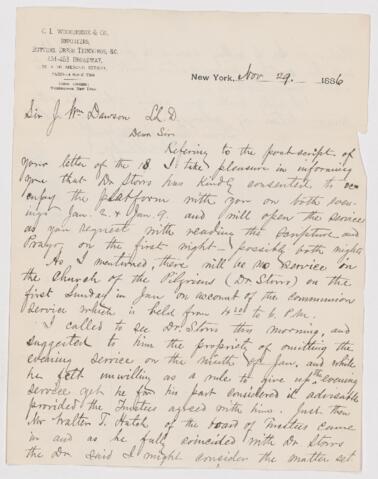 C. L. Woodbridge & Co.
IMPORTERS,
BUTTONS, DRESS TRIMMINGS, &C.
451-453 BROADWAY,
New York, Nov 29. 1886
Sir J. Wm Dawson LL.D.
Dear Sir:
Refering to the post-script of
your letter of the 18 I take pleasure in informing
you that Dr Storrs has kindly consented to
occupy the platform with you on both eve-
nings Jan. 2 & Jan 9. and will open the service
as you request with reading the Scripture and
Prayer on the first night - possibly both nights
As I mentioned, there will be no service in
the Church of the Pilgrims (Dr Storrs) on the
first Sunday in Jan on account of the communion
service which is held from 4 to 6 P.M.
I called to see Dr. Storrs this morning, and
suggested to him the propriety of omitting the
evening service on the ninth of Jan. and while
he felt unwilling as a rule to give up the evening
service yet he for his part considered it advisable
provided the Trustees agreed with him. Just then
Mr Walter T. Hatch of the board of Trustees came
in and as he fully coincided with Dr Storrs
the Dr. said I might consider the matter set